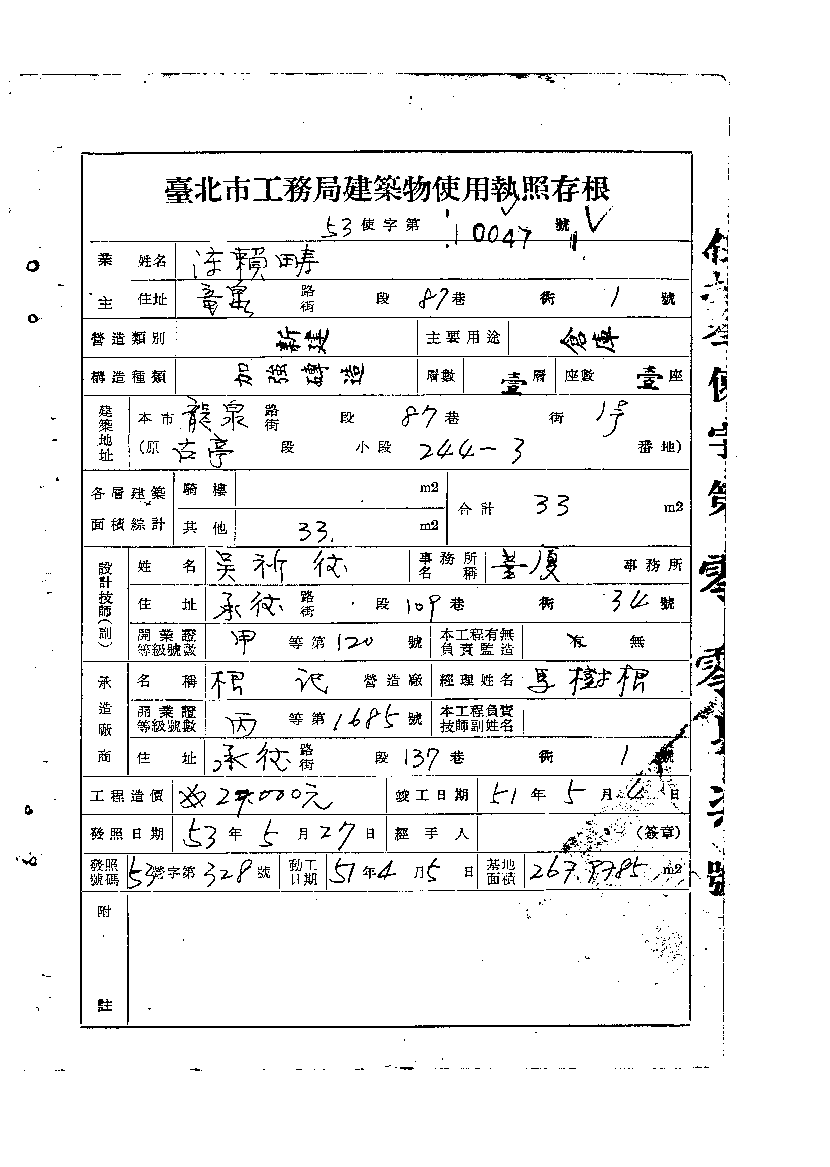 臺北市工務局建築物使用執照存根
53使字第10047號
業主 姓名 賴疇
住址 龍泉 路街 段 87巷 街 1 號
營造類別 新建 主要用途 倉庫
構造種類 加強磚造 層數 壹層 座數 壹座
建築地址 本市龍泉路街 段 87巷 街 1号
(原 古亭 段 小段 244-3 番地)
各層建築面積綜計 騎樓 m2 合計 33 m2
其他 33. m2
設計技師(副) 姓名 吳 事務所名稱 事務所
住址 承德路街 段 109巷 街 34號
開業證等級號數 甲等第120號 本工程有無負責監造 有 無
承造廠商 名稱 根記 營造廠 經理姓名 樹根
開業證等級號數 丙等第1685號 本工程負責技師副姓名
住址 承德路街 段 137巷 街 1號
工程造價 000元 竣工日期 51年5月 日
發照日期 53年5月27日 經手人 (簽章)
發照號碼 53營字第328號 動工日期 51年4月5日 基地面積 267. 85 m2
附註
使字第零零 號